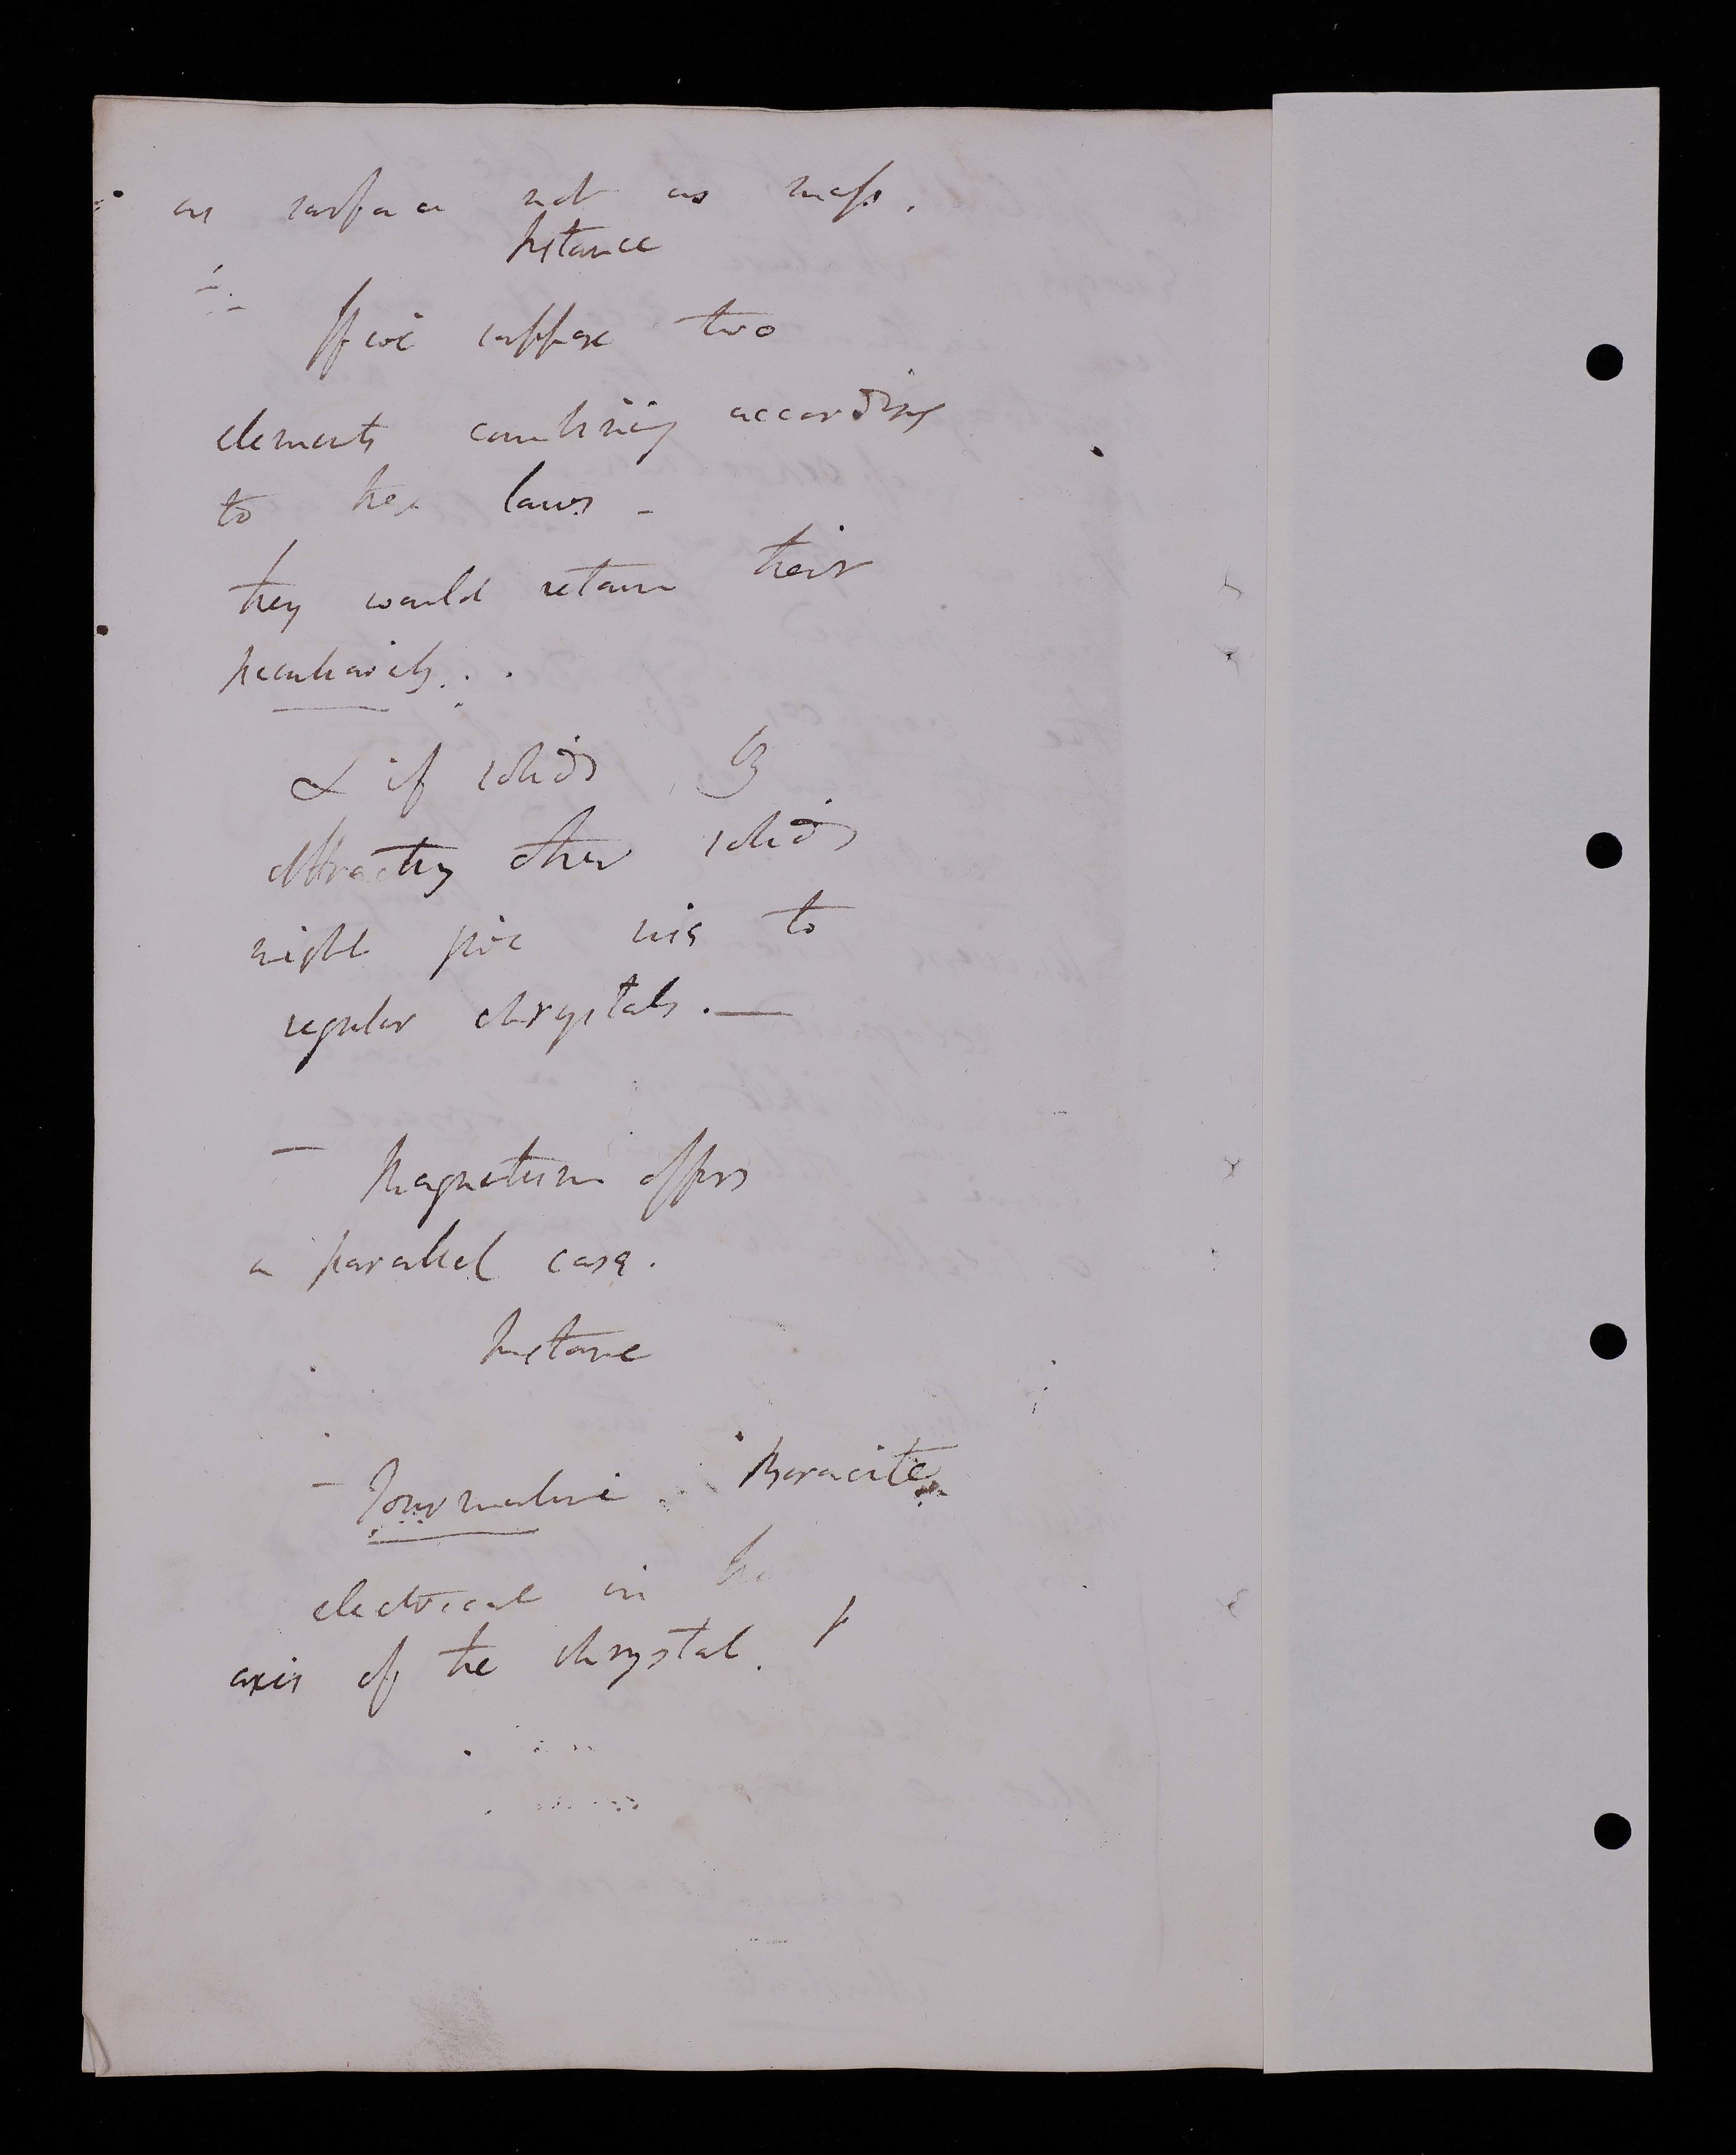 as surface not as mass.
Instance
If we suppose two
elements combining according
to these laws -
they would retain their
peculiarity
& if solids by
attracting other solids
might give rise to
regular chrystals. —
— Magnetism offers
a parallel case.
Instance
— Tourmaline Boracite
electrical in the
axis of the chrystal.